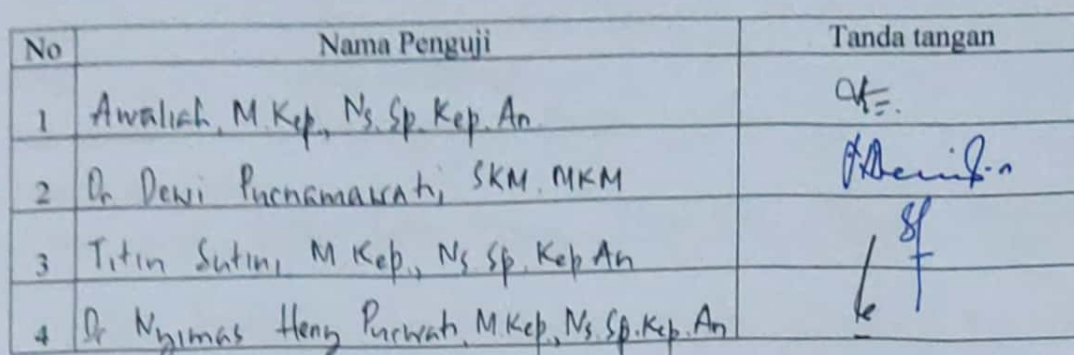 No Nama Penguji Tanda tangan
1 Awaliah, M.Kep., Ns. Sp. Kep. An
2 Dr Dewi Purnamawati, SKM. MKM
3 Titin Sutini, M Kep., Ns Sp. Kep An
4 Dr Nyimas Heny Purwati, M.Kep., Ns. Sp. Kep. An